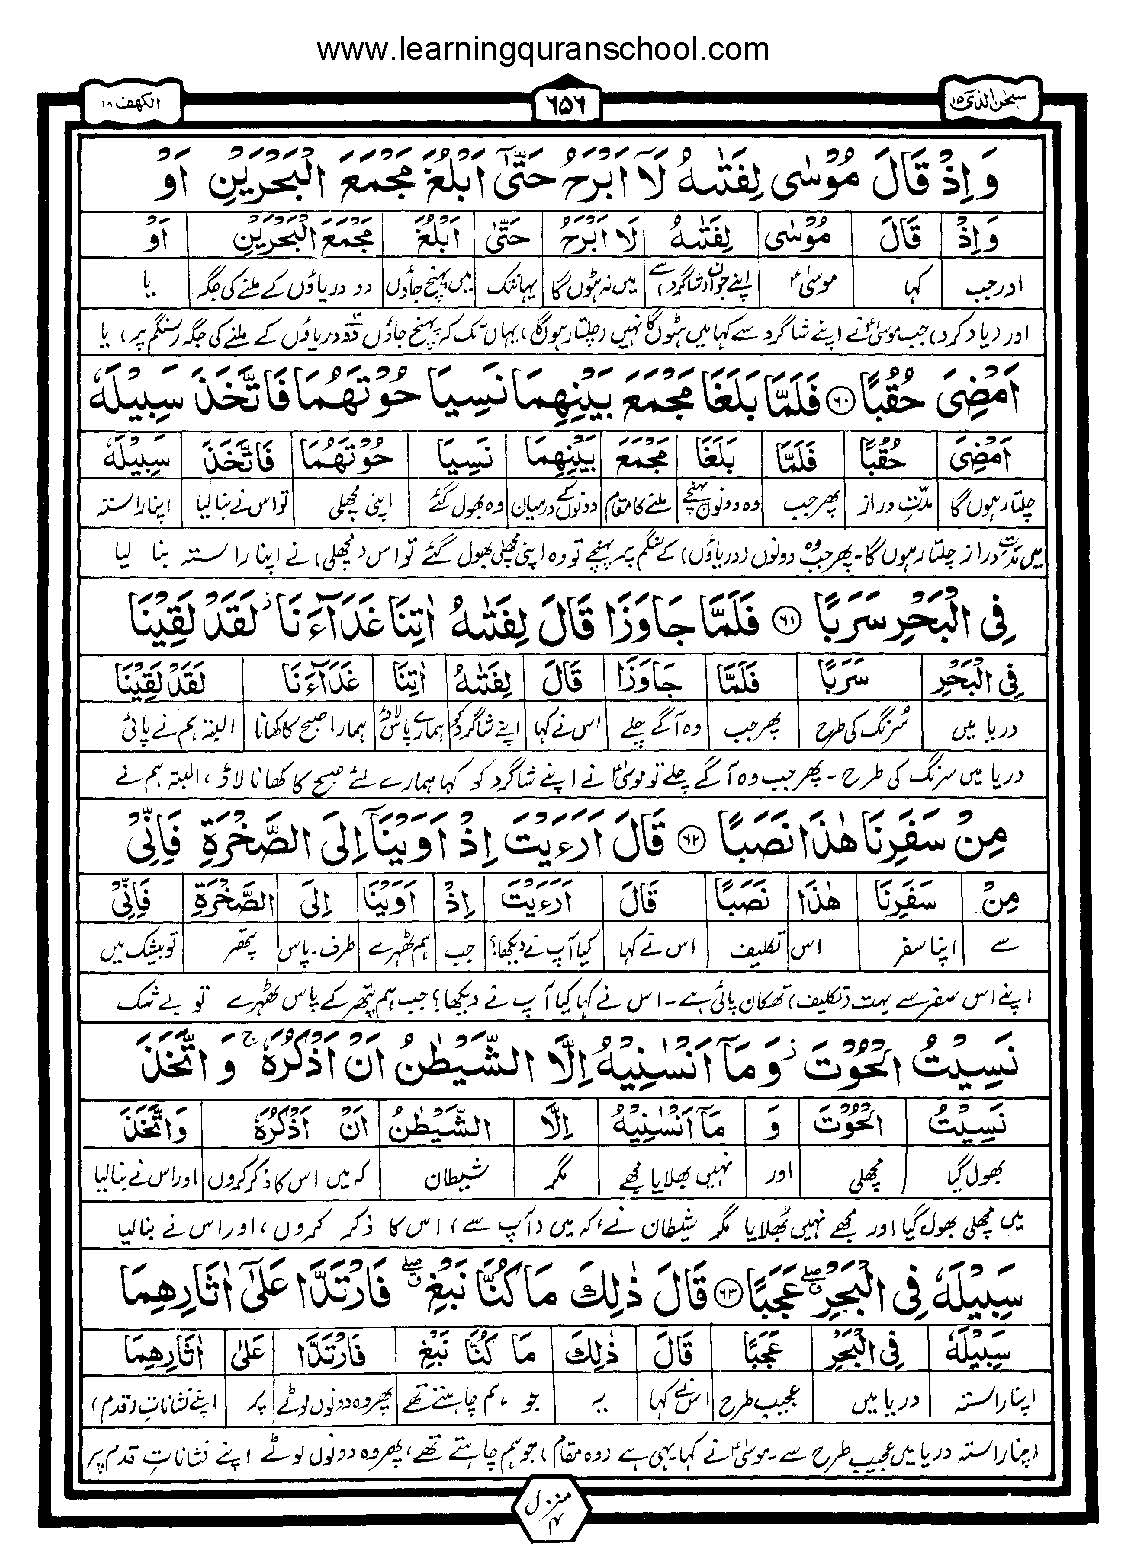 www.learningquranschool.com
سبحٰن الذی ۱۵
۶۵۶
الکھف ۱۸
وَ اِذْ قَالَ مُوْسٰى لِفَتٰىهُ لَاۤ اَبْرَحُ حَتّٰۤى اَبْلُغَ مَجْمَعَ الْبَحْرَیْنِ اَوْ
وَ اِذْ قَالَ مُوْسٰى لِفَتٰىهُ لَاۤ اَبْرَحُ حَتّٰۤى اَبْلُغَ مَجْمَعَ الْبَحْرَیْنِ اَوْ
اور جب کہا موسیٰؑ اپنے جوان (شاگرد) سے میں نہ ہٹوں گا یہانتک میں پہنچ جاؤں دو دریاؤں کے ملنے کی جگہ یا
اور (یاد کرو) جب موسیٰؑ نے اپنے شاگرد سے کہا میں ہٹوں گا نہیں (چلتا رہوں گا) یہاں تک کہ پہنچ جاؤں دو دریاؤں کے ملنے کی جگہ (سنگم پر) یا
اَمْضِیَ حُقُبًا ۶۰ فَلَمَّا بَلَغَا مَجْمَعَ بَیْنِهِمَا نَسِیَا حُوْتَهُمَا فَاتَّخَذَ سَبِیْلَهٗ
اَمْضِیَ حُقُبًا فَلَمَّا بَلَغَا مَجْمَعَ بَیْنِهِمَا نَسِیَا حُوْتَهُمَا فَاتَّخَذَ سَبِیْلَهٗ
چلتا رہوں گا مدّتِ دراز پھر جب وہ دونوں پہنچے ملنے کا مقام دونوں کے درمیان وہ بھول گئے اپنی مچھلی تو اس نے بنا لیا اپنا راستہ
میں مدتِ دراز چلتا رہوں گا۔ پھر جب وہ دونوں (دریاؤں) کے سنگم پر پہنچے تو وہ اپنی مچھلی بھول گئے تو اس (مچھلی) نے اپنا راستہ بنا لیا
فِی الْبَحْرِ سَرَبًا ۶۱ فَلَمَّا جَاوَزَا قَالَ لِفَتٰىهُ اٰتِنَا غَدَآءَنَا لَقَدْ لَقِیْنَا
فِی الْبَحْرِ سَرَبًا فَلَمَّا جَاوَزَا قَالَ لِفَتٰىهُ اٰتِنَا غَدَآءَنَا لَقَدْ لَقِیْنَا
دریا میں سُرنگ کی طرح پھر جب وہ آگے چلے اس نے کہا اپنے شاگرد کو ہمارے پاس لاؤ ہمارا صبح کا کھانا البتہ ہم نے پائی
دریا میں سرنگ کی طرح۔ پھر جب وہ آگے چلے تو موسیٰؑ نے اپنے شاگرد کو کہا ہمارے لئے صبح کا کھانا لاؤ، البتہ ہم نے
مِنْ سَفَرِنَا هٰذَا نَصَبًا ۶۲ قَالَ اَرَءَیْتَ اِذْ اَوَیْنَاۤ اِلَى الصَّخْرَةِ فَاِنِّیْ
مِنْ سَفَرِنَا هٰذَا نَصَبًا قَالَ اَرَءَیْتَ اِذْ اَوَیْنَا اِلَى الصَّخْرَةِ فَاِنِّیْ
سے اپنا سفر اس تکلیف اس نے کہا کیا آپ نے دیکھا؟ جب ہم ٹھہرے طرف۔ پاس پتھر تو بیشک میں
اپنے اس سفر سے بہت (تکلیف) تھکان پائی ہے۔ اس نے کہا کیا آپ نے دیکھا؟ جب ہم پتھر کے پاس ٹھہرے تو بے شک
نَسِیْتُ الْحُوْتَ وَ مَاۤ اَنْسٰىنِیْهُ اِلَّا الشَّیْطٰنُ اَنْ اَذْكُرَهٗ ج وَ اتَّخَذَ
نَسِیْتُ الْحُوْتَ وَ مَاۤ اَنْسٰىنِیْهُ اِلَّا الشَّیْطٰنُ اَنْ اَذْكُرَهٗ وَاتَّخَذَ
بھول گیا مچھلی اور نہیں بھلایا مجھے مگر شیطان کہ میں اس کا ذکر کروں اور اس نے بنا لیا
میں مچھلی بھول گیا اور مجھے نہیں بُھلایا مگر شیطان نے، کہ میں (آپ سے) اس کا ذکر کروں، اور اس نے بنا لیا
سَبِیْلَهٗ فِی الْبَحْرِ عَجَبًا ۶۳ قَالَ ذٰلِكَ مَا كُنَّا نَبْغِ فَارْتَدَّا عَلٰۤى اٰثَارِهِمَا
سَبِیْلَهٗ فِی الْبَحْرِ عَجَبًا قَالَ ذٰلِكَ مَا كُنَّا نَبْغِ فَارْتَدَّا عَلٰى اٰثَارِهِمَا
اپنا راستہ دریا میں عجیب طرح اس نے کہا یہ جو ہم چاہتے تھے پھر وہ دونوں لوٹے پر اپنے نشانات (قدم)
اپنا راستہ دریا میں عجیب طرح سے۔ موسیٰؑ نے کہا یہی ہے (وہ مقام) جو ہم چاہتے تھے، پھر وہ دونوں لوٹے اپنے نشاناتِ قدم پر
منزل ۴